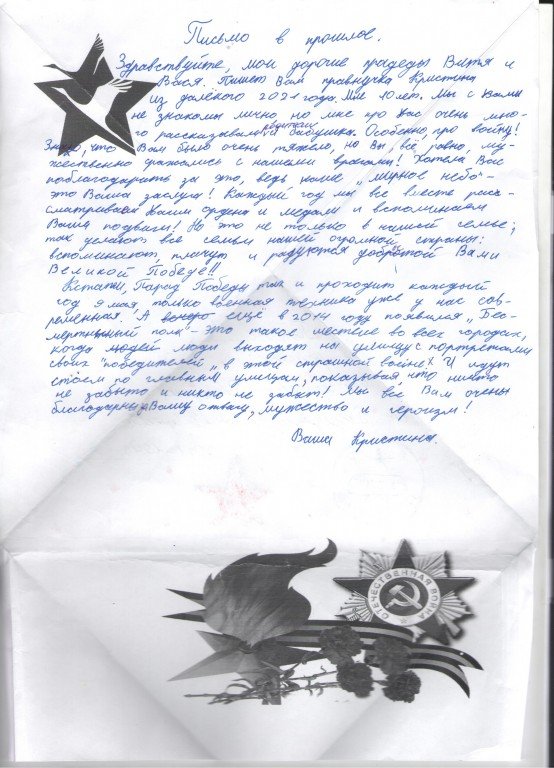 Письмо в прошлое.
Здравствуйте, мои дорогие прадеды Витя и
Вася. Пишет Вам правнучка Кристина
из далёкого 2021 года. Мне 10 лет. Мы с Вами
не знакомы лично, но мне про Вас очень мно-
го рассказывали родители бабушка. Особенно, про войну!
Знаю, что Вам было очень тяжело, но Вы всё равно, му-
жественно сражались с нашими врагами! Хотела Вас
поблагодарить за это, ведь наше „мирное небо"-
это Ваша заслуга! Каждый год мы все вместе рас-
сматриваем Ваши ордена и медали и вспоминаем
Ваши подвиги! Но это не только в нашей семье;
так делают все семьи нашей огромной страны:
вспоминают, плачут и радуются добытой Вами
Великой Победе!!
Кстати, Парад Победы так и проходит каждый
год 9 мая, только военная техника уже у нас сов-
ременная! А ещё в 2014 году появился „Бес-
мертный полк"- это такое шествие во всех городах,
когда людей люди выходят на улицу с портретами
своих "победителей„ в этой страшной войне! И идут
строем по главным улицам, показывая что ничто
не забыто и никто не забыт! Мы все Вам очень
благодарны за Вашу отвагу, мужество и героизм!
Ваша Кристина.
ОТЕЧЕСТВЕННАЯ ВОЙНА